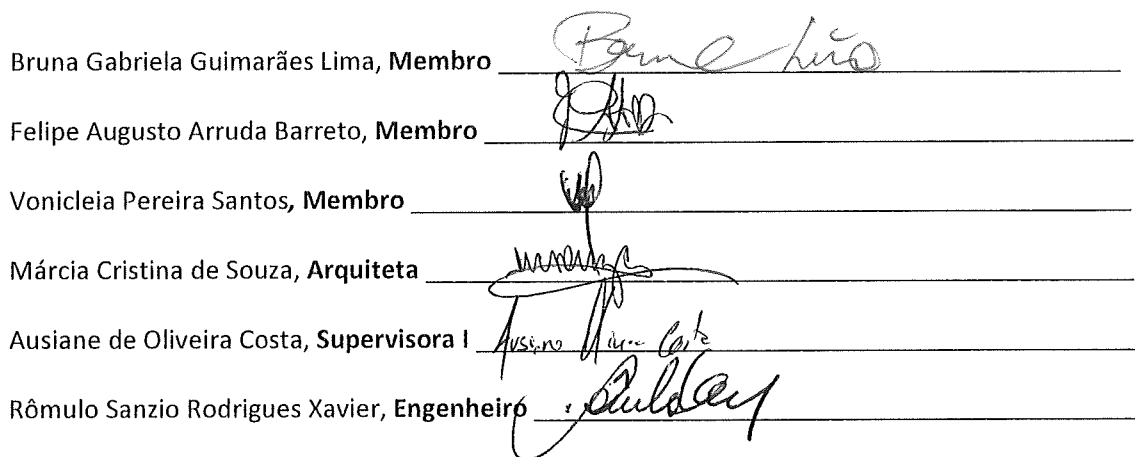 Bruna Gabriela Guimarães Lima, Membro
Felipe Augusto Arruda Barreto, Membro
Vonicleia Pereira Santos, Membro
Márcia Cristina de Souza, Arquiteta
Ausiane de Oliveira Costa, Supervisora I
Rômulo Sanzio Rodrigues Xavier, Engenheiro